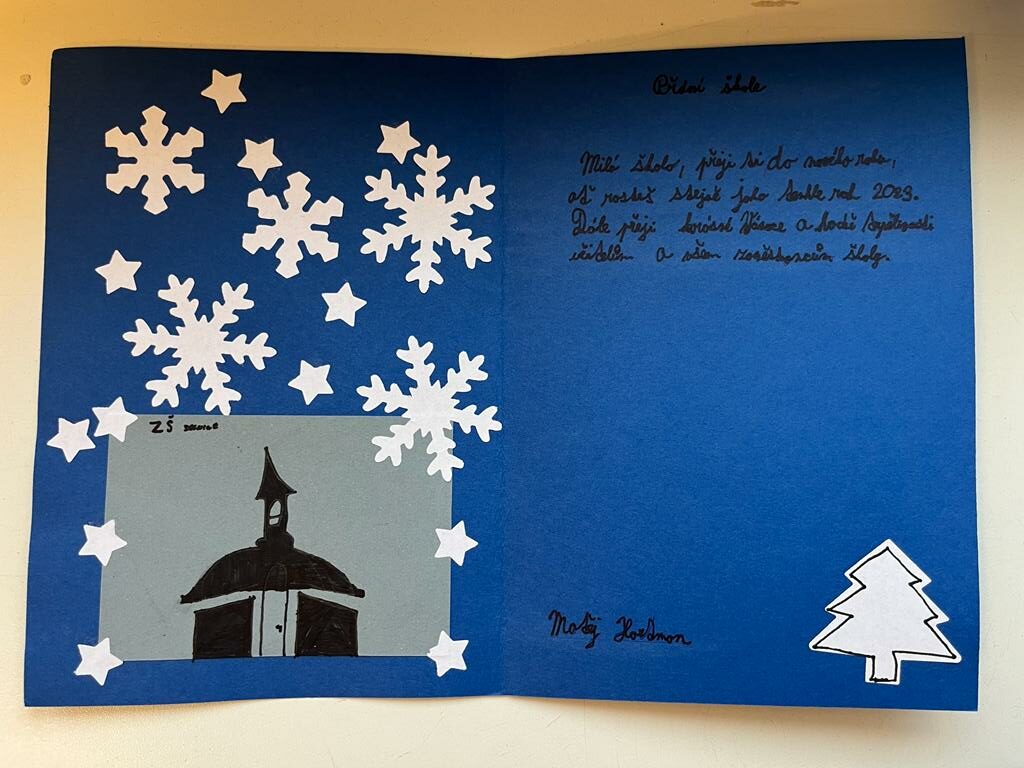 ZŠ
Přání škole
Milá školo, přeji si do nového roku,
ať rosteš stejně jako tenhle rok 2023.
Dále přeji krásné Vánoce a hodně trpělivosti
učitelům a všem zaměstnancům školy.
Matěj